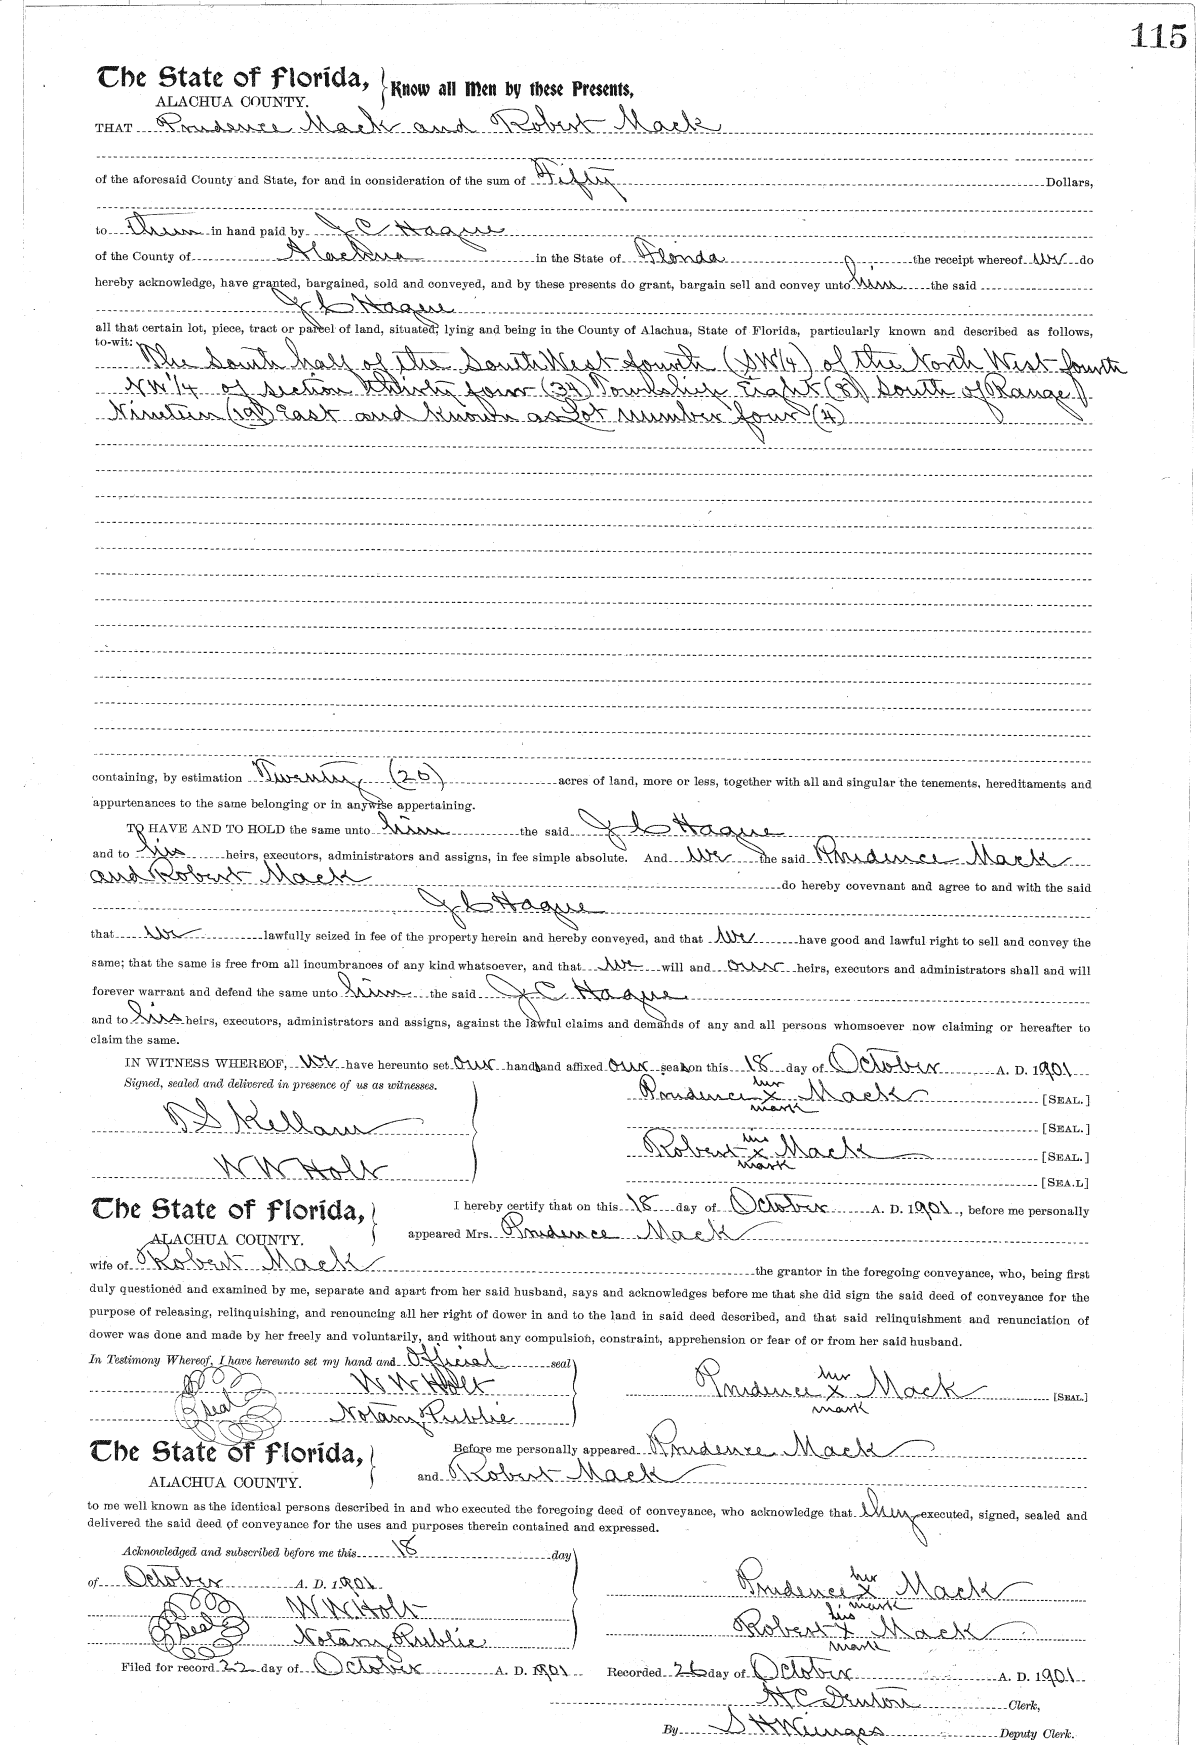 115
The State of Florida, } Know all Men by these Presents,
ALACHUA COUNTY.
THAT Prudence Mack and Robert Mack
of the aforesaid County and State, for and in consideration of the sum of Fifty Dollars,
to them in hand paid by J C Hague
of the County of Alachua in the State of Florida the receipt whereof we do
hereby acknowledge, have granted, bargained, sold and conveyed, and by these presents do grant, bargain sell and convey unto him the said
J C Hague
all that certain lot, piece, tract or parcel of land, situated, lying and being in the County of Alachua, State of Florida, particularly known and described as follows,
to-wit: The South half of the South West fourth (SW1/4) of the North West fourth
NW1/4 of section thirty four (34) Township Eight (8) South of Range
Nineteen (19) East and known as Lot number four (4)
containing, by estimation Twenty (20) acres of land, more or less, together with all and singular the tenements, hereditaments and
appurtenances to the same belonging or in anywise appertaining.
TO HAVE AND TO HOLD the same unto him the said J C Hague
and to his heirs, executors, administrators and assigns, in fee simple absolute. And we the said Prudence Mack
and Robert Mack do hereby covevnant and agree to and with the said
J C Hague
that we lawfully seized in fee of the property herein and hereby conveyed, and that we have good and lawful right to sell and convey the
same; that the same is free from all incumbrances of any kind whatsoever, and that we will and our heirs, executors and administrators shall and will
forever warrant and defend the same unto him the said J C Hague
and to his heirs, executors, administrators and assigns, against the lawful claims and demands of any and all persons whomsoever now claiming or hereafter to
claim the same.
IN WITNESS WHEREOF, we have hereunto set our hands and affixed our seals on this 18 day of October A. D. 1901
Signed, sealed and delivered in presence of us as witnesses.
her
Prudence x Mack [SEAL.]
mark
D S Kellam [SEAL.]
his
Robert x Mack [SEAL.]
mark
W W Holt [SEA.L]
The State of Florida, } I hereby certify that on this 18 day of October A. D. 1901, before me personally
ALACHUA COUNTY. appeared Mrs. Prudence Mack
wife of Robert Mack the grantor in the foregoing conveyance, who, being first
duly questioned and examined by me, separate and apart from her said husband, says and acknowledges before me that she did sign the said deed of conveyance for the
purpose of releasing, relinquishing, and renouncing all her right of dower in and to the land in said deed described, and that said relinquishment and renunciation of
dower was done and made by her freely and voluntarily, and without any compulsion, constraint, apprehension or fear of or from her said husband.
In Testimony Whereof, I have hereunto set my hand and official seal
her
W W Holt Prudence x Mack [SEAL.]
mark
Seal Notary Public
The State of Florida, } Before me personally appeared Prudence Mack
ALACHUA COUNTY. and Robert Mack
to me well known as the identical persons described in and who executed the foregoing deed of conveyance, who acknowledge that they executed, signed, sealed and
delivered the said deed of conveyance for the uses and purposes therein contained and expressed.
Acknowledged and subscribed before me this 18 day
of October A. D. 1901
her
Prudence x Mack
mark
W W Holt
his
Robert x Mack
mark
Seal Notary Public
Filed for record 22 day of October A. D. 1901 Recorded 26 day of October A. D. 1901
H C Denton Clerk,
By S H Wienges Deputy Clerk.